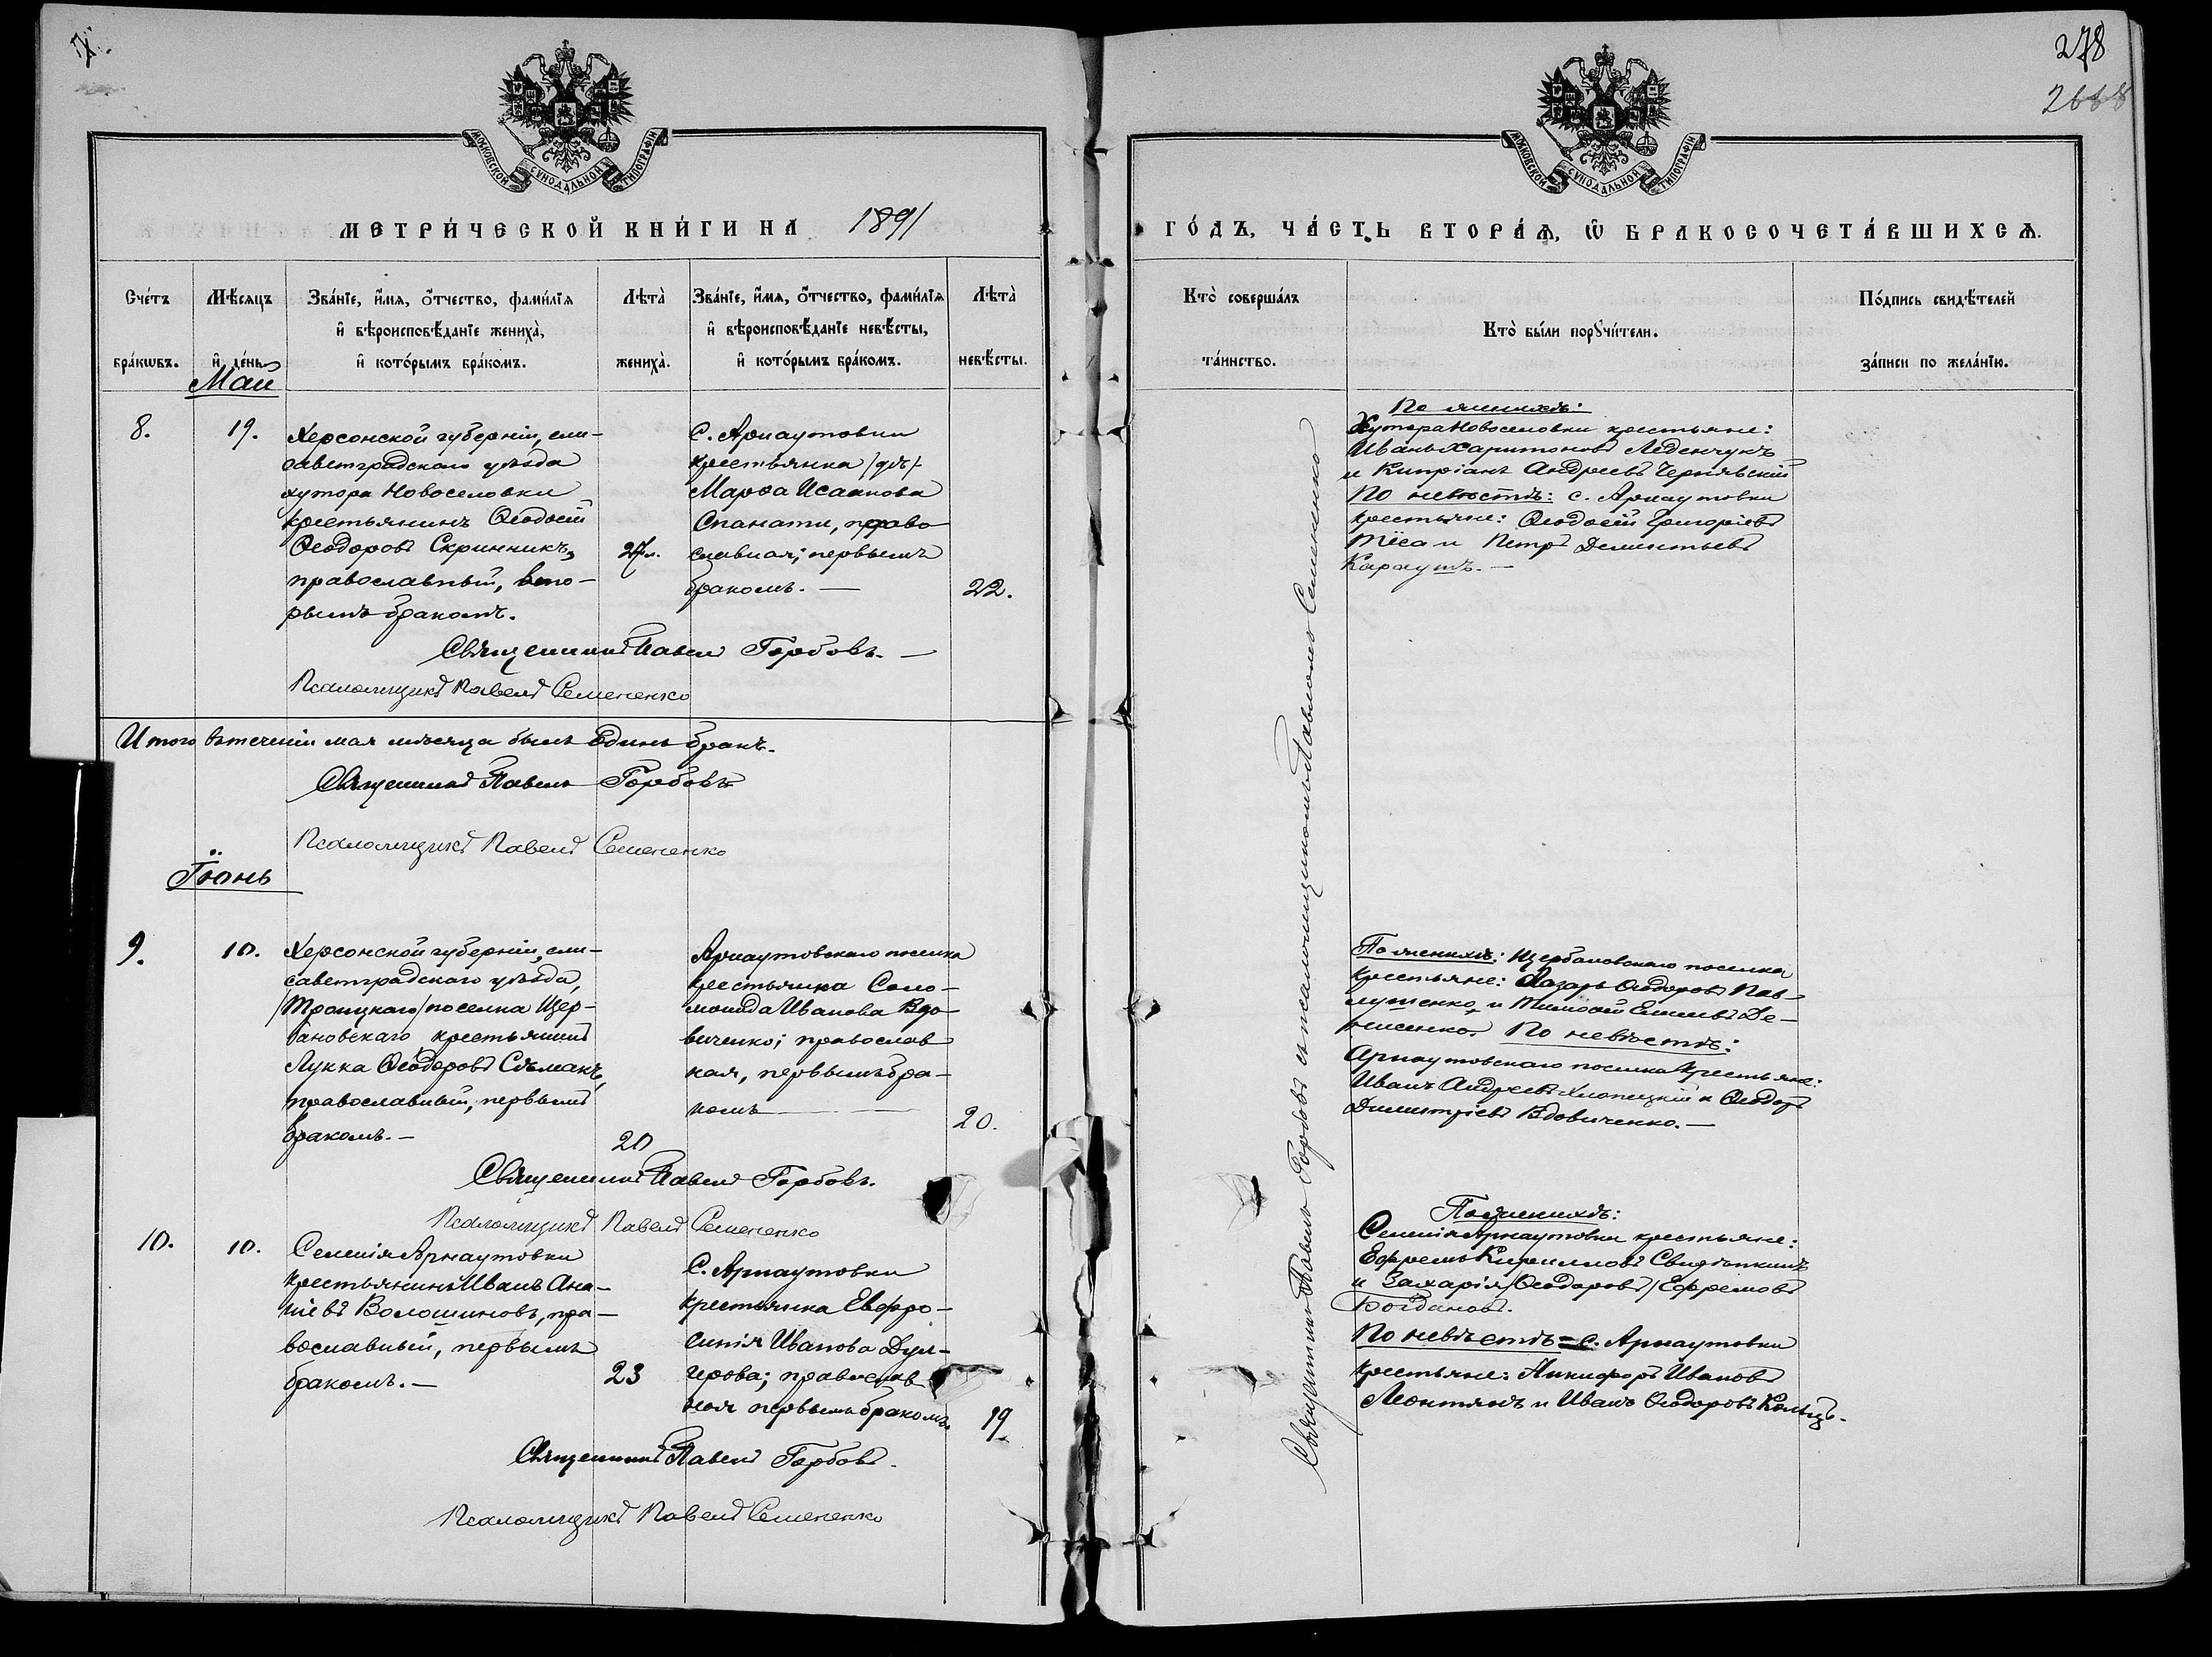 278
МОСКОВСКОЙ СѴНОДАЛЬНОЙ ТИПОГРАФІИ
МОСКОВСКОЙ СѴНОДАЛЬНОЙ ТИПОГРАФІИ
МЕТРИ́ЧЕСКОЙ КНИ́ГИ НА 1891
ГО́ДЪ, ЧА́СТЬ ВТОРА́Ѧ, Ѡ БРАКОСОЧЕТА́ВШИХСѦ.
Сче́тъ бра́кѡвъ.
Мѣ́сяцъ и де́нь
Зва́нїе, и́мя, о́тчество, фами́лїя
и вѣроисповѣ́данїе жениха̀,
и кото́рымъ бра́комъ.
Лѣта̀ жениха̀.
Зва́нїе, и́мя, о́тчество, фами́лїя
и вѣроисповѣ́данїе невѣ́сты,
и кото́рымъ бра́комъ.
Лѣта̀ невѣ́сты.
Кто̀ соверша́лъ та́инство.
Кто̀ бы́ли порꙋчи́тели.
По́дпись свидѣ́телей
за́писи по жела́нїю.
Май
8.
19.
Херсонской губерніи, ели-
саветградскаго уѣзда
хутора Новоселовки
крестьянинъ Ѳеодосій
Ѳеодоровъ Скринникъ,
православный, вто-
рымъ бракомъ.
27 л.
С. Арнаутовки
крестьянка /дѣ/
Марѳа Исаакова
Спанати, право
славная; первымъ
бракомъ. —
22.
Священникъ Павелъ Горбовъ. —
Псаломщикъ Павелъ Семененко
По женихѣ:
Хутора Новоселовки крестьяне:
Иванъ Харитоновъ Леденчукъ
и Кипріанъ Андреевъ Чернявскій
По невѣстѣ: с. Арнаутовки
крестьяне: Ѳеодосій Григоріевъ
и Петръ Дементьевъ
Караутъ. —
Итого въ теченіи мая мѣсяца былъ Одинъ бракъ.
Священникъ Павелъ Горбовъ
Псаломщикъ Павелъ Семененко
Іюнь
9.
10.
Херсонской губерніи, ели-
саветградскаго уѣзда,
/Троицкаго/ поселка Щер-
бановскаго крестьянинъ
Лукка Ѳеодоровъ Сѣмакъ,
православный, первымъ
бракомъ. —
20
Арнаутовскаго поселка
крестьянка Соло-
монида Иванова Вдо-
виченко; православ
ная, первымъ бра-
комъ —
20.
Священникъ Павелъ Горбовъ.
Псаломщикъ Павелъ Семененко
По женихѣ: Щербановскаго поселка
крестьяне: Лазарь Ѳеодоровъ Пав-
лушенко и Тимоѳей Де-
нисенко. По невѣстѣ:
Арнаутовскаго поселка крестьяне:
Иванъ Андреевъ Хлопецкій и Ѳеодоръ
Димитріевъ Вдовиченко. —
10.
10.
Селенія Арнаутовки
крестьянинъ Иванъ Ана-
ніевъ Волошиновъ, пра-
вославный, первымъ
бракомъ. —
23
С. Арнаутовки
крестьянка Евфро-
синія Иванова Дул-
герова; православ
ная первымъ бракомъ.
19
Священникъ Павелъ Горбовъ.
Псаломщикъ Павелъ Семененко
По женихѣ:
Селенія Арнаутовки крестьяне:
Ефремъ Кирилловъ
и Захарія /Ѳеодоровъ/ Ефремовъ
Богдановъ.
По невѣстѣ = с. Арнаутовки
крестьяне: Никифоръ Ивановъ
Леонтякъ и Иванъ Ѳеодоровъ
Священникъ Павелъ Горбовъ съ псаломщикомъ Павломъ Семененко